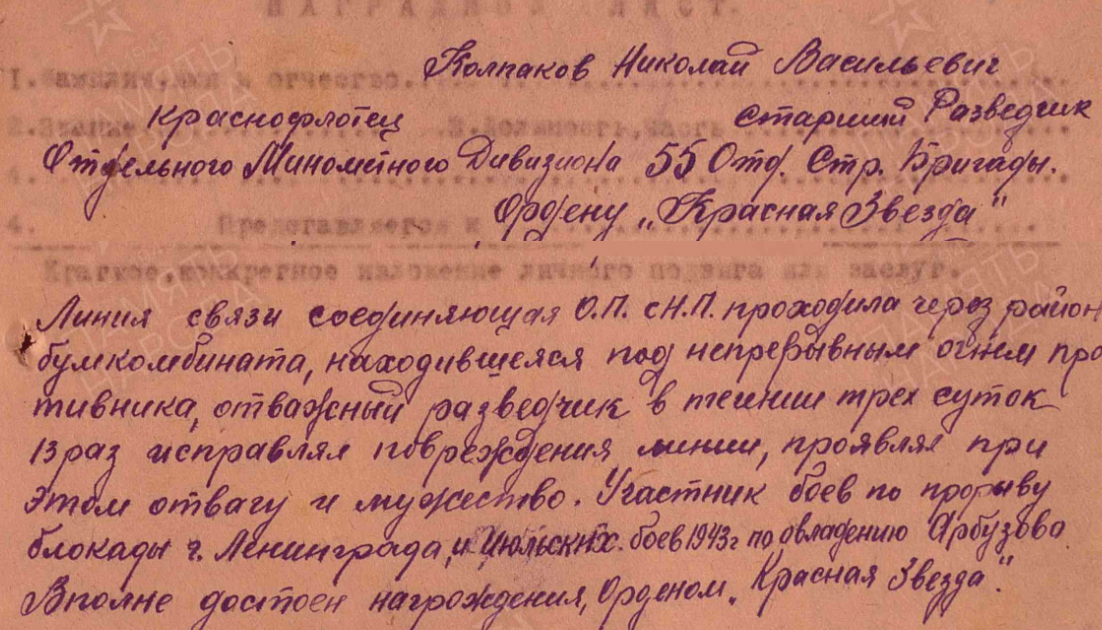 НАГРАДНОЙ ЛИСТ.
1. Фамилия, имя и отчество. Колпаков Николай Васильевич
2. Звание Краснофлотец 3. Должность, часть Старший Разведчик
Отдельного Минометного Дивизиона 55 Отд. Стр. Бригады.
4. Представляется к Ордену „Красная Звезда"
Краткое, конкретное изложение личного подвига или заслуг.
Линия связи соединяющая О.П. с Н.П. проходила через район
бумкомбината, находившееся под непрерывным огнем про
тивника, отважный разведчик в течнии трех суток
13 раз исправлял повреждения линии, проявляя при
этом отвагу и мужество. Участник боев по прорыву
блокады г. Ленинграда, и июльских боев 1943г по овладению Арбузово.
Вполне достоен нагрождения, Орденом „Красная Звезда".